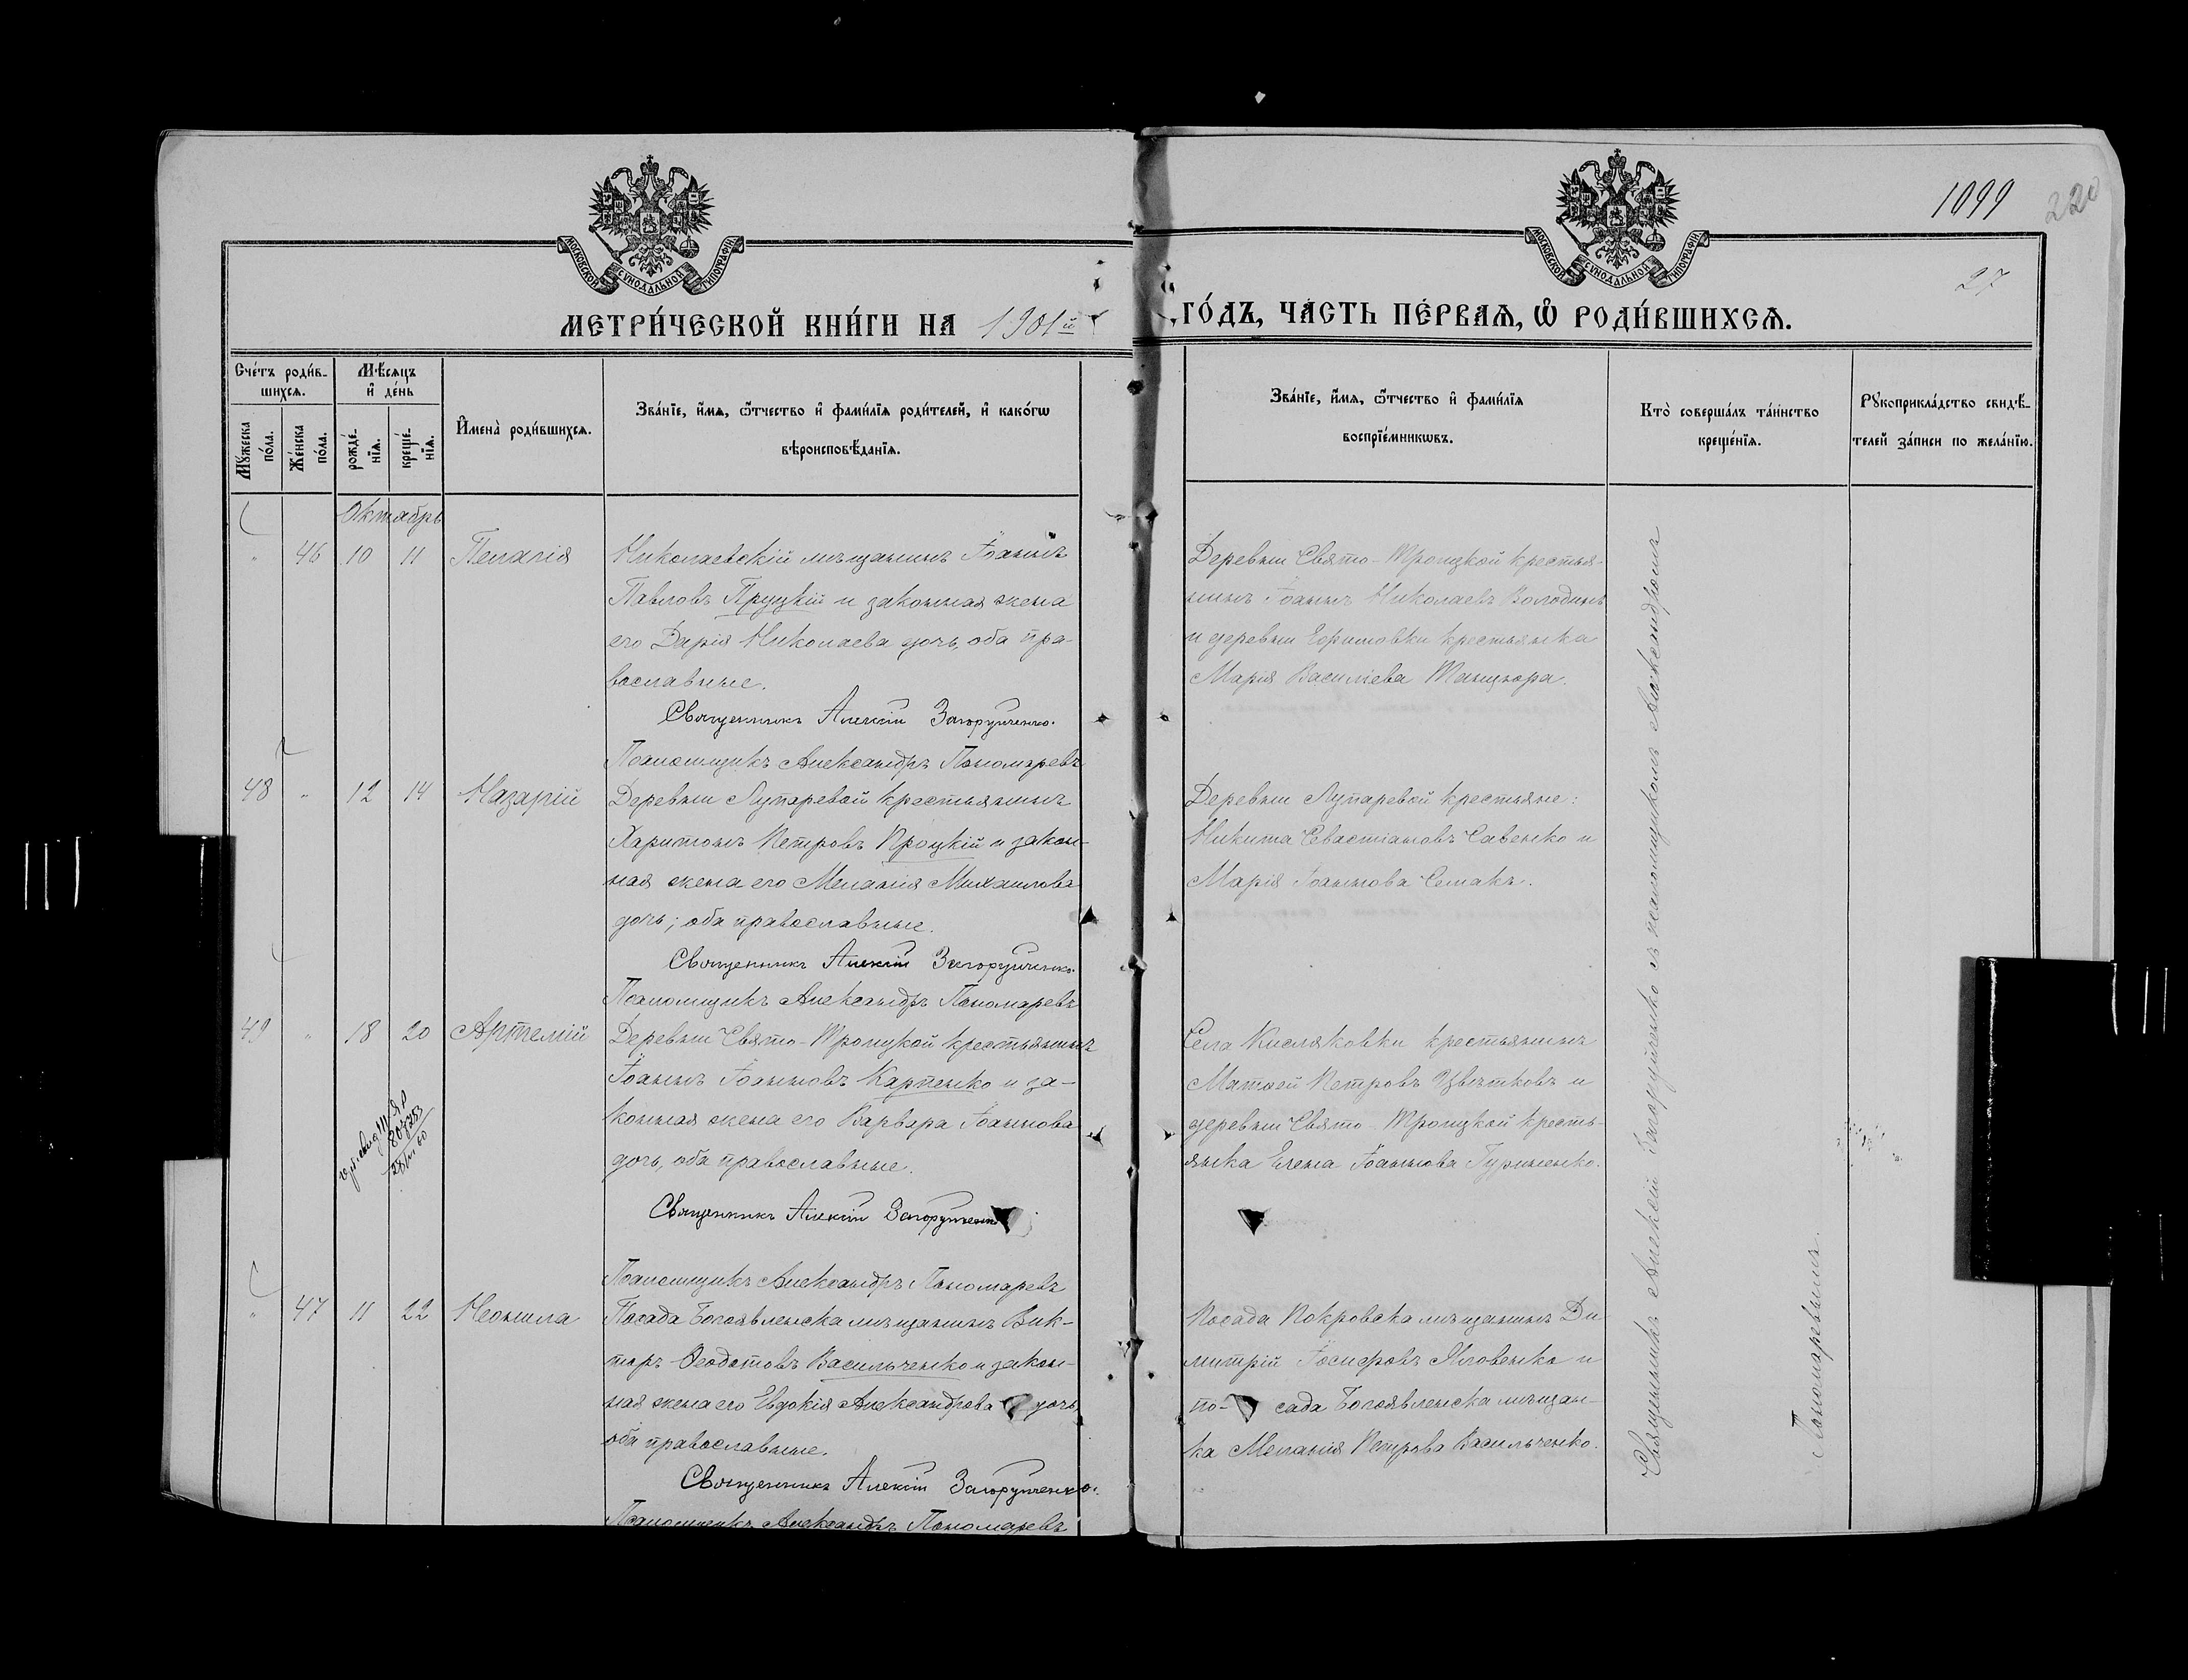 1099
220
27
МОСКОВСКОЙ СѴНОДАЛЬНОЙ ТИПОГРАФІИ
МОСКОВСКОЙ СѴНОДАЛЬНОЙ ТИПОГРАФІИ
МЕТРИ́ЧЕСКОЙ КНИ́ГИ НА 1901й
ГО́ДЪ, ЧА́СТЬ ПЕ́РВАѦ, Ѽ РОДИ́ВШИХСѦ.
Сче́тъ роди́в-
шихсѧ.
Мꙋжеска по́ла.
Же́нска по́ла.
Мѣ́сѧцъ
и҆ де́нь
рожде́-
нїѧ.
креще́-
нїѧ.
И҆мена̀ роди́вшихсѧ.
Зва́нїе, и҆́мѧ, ѻ҆́тчество и҆ фами́лїѧ роди́телей, и҆ како́гѡ
вѣроисповѣ́данїѧ.
Зва́нїе, и҆́мѧ, ѻ҆́тчество и҆ фами́лїѧ
воспрїе́мникѡвъ.
Кто̀ соверша́лъ та́инство
креще́нїѧ.
Рꙋкоприкла́дство свидѣ́-
телей за́писи по жела́нїю.
Октябрь
" 46 10 11 Пелагія
Николаевскій мѣщанинъ Іоаннъ
Павловъ Пруцкій и законная жена
его Дарія Николаева дочь, оба пра-
вославные.
Священникъ Алексій Загоруйченко.
Псаломщикъ Александръ Пономаревъ
Деревни Свято-Троицкой крестья-
нинъ Іоаннъ Николаевъ Володинъ
и деревни Ефимовки крестьянка
Марія Василіева Танцюра.
48 " 12 14 Назарій
Деревни Лупаревой крестьянинъ
Харитонъ Петровъ Процкій и закон-
ная жена его Меланія Михаилова
дочь; оба православные.
Священникъ Алексій Загоруйченко.
Псаломщикъ Александръ Пономаревъ
Деревни Лупаревой крестьяне:
Никита Севастіановъ Савенко и
Марія Іоаннова Семакъ.
49 " 18 20 Артемій
Деревни Свято-Троицкой крестьянинъ
Іоаннъ Іоанновъ Карпенко и за-
конная жена его Варвара Іоаннова
дочь, оба православные.
Священникъ Алексій Загоруйченко
Псаломщикъ Александръ Пономаревъ
Села Кисляковки крестьянинъ
Матѳей Петровъ Цвѣтковъ и
деревни Свято-Троицкой кресть-
янка Елена Іоаннова Гуриненко.
" 47 11 22 Неонила
Посада Богоявленска мѣщанинъ Вик-
торъ Ѳеодотовъ Васильченко и закон-
ная жена его Евдокія Александрова дочь
оба православные.
Священникъ Алексій Загоруйченко.
Псаломщикъ Александръ Пономаревъ
Посада Покровска мѣщанинъ Ди-
митрій Іосифовъ Яловенко и
по- сада Богоявленска мѣщан-
ка Меланія Петрова Васильченко.
Священникъ Алексій Загоруйченко съ псаломщикомъ Александромъ
Пономаревымъ.